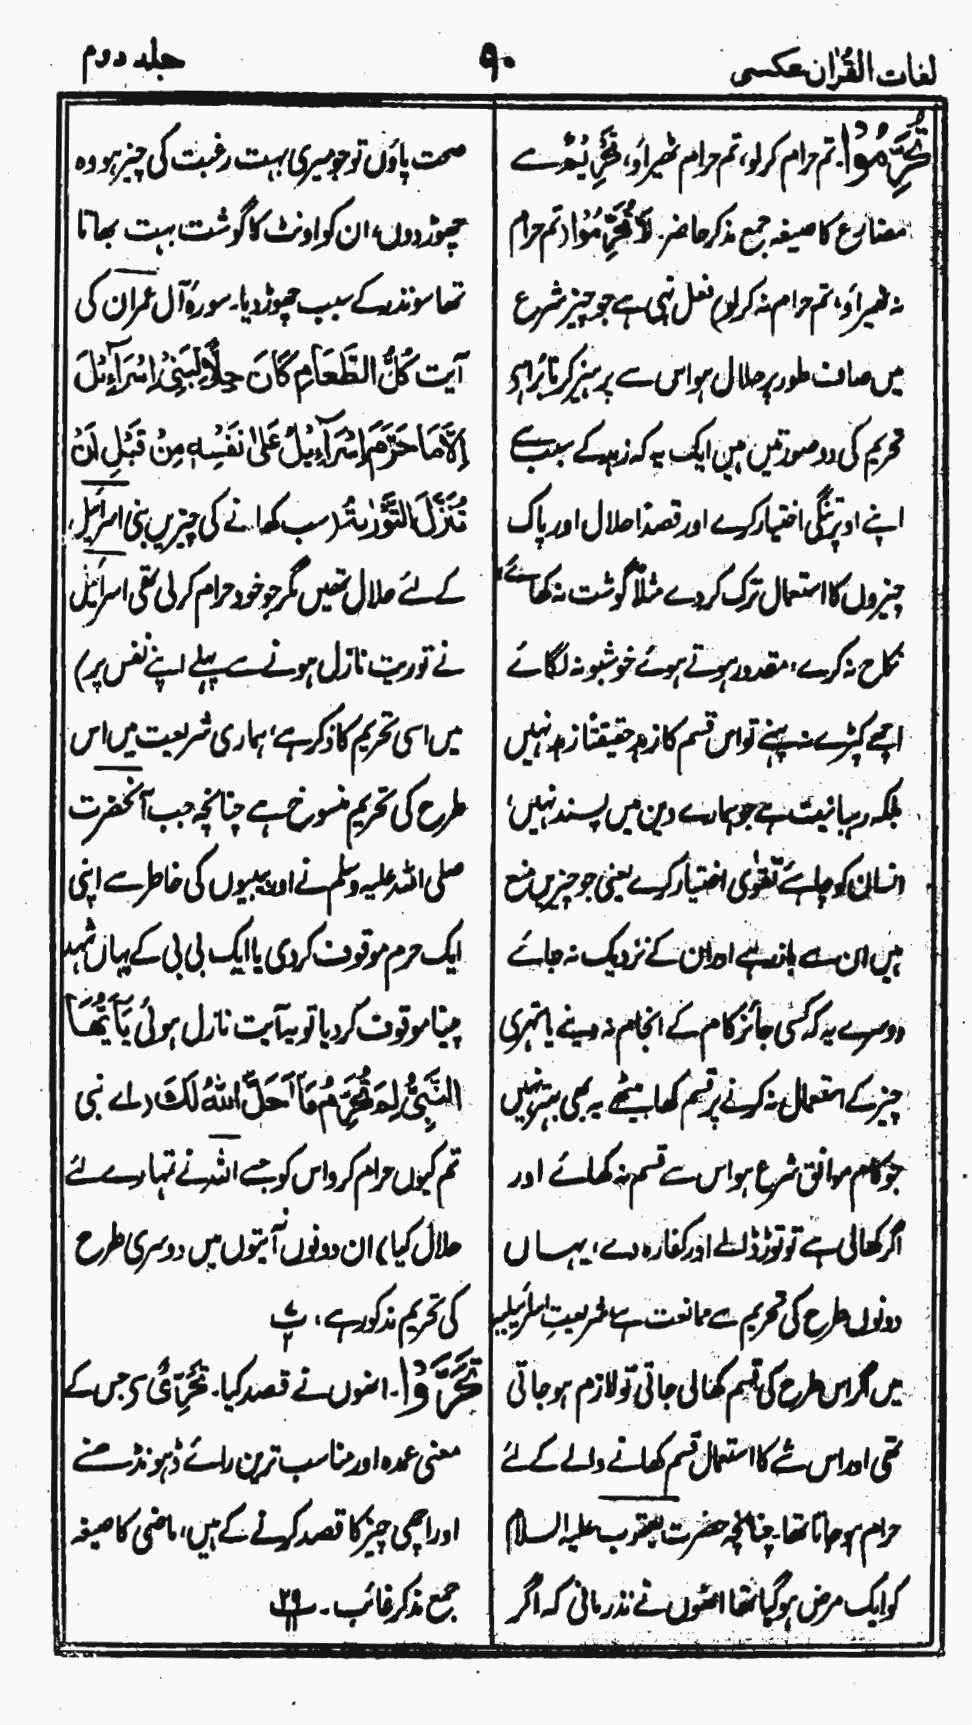 لغات القرآن عکسی
۹۰
جلد دوم
تُحَرِّمُوْا۔ تم حرام کرلو، تم حرام ٹھیراؤ، تَحْرِیْمٌ سے
مضارع کا صیغہ جمع مذکر حاضر۔ لَا تُحَرِّمُوْا (تم حرام
نہ ٹھیراؤ، تم حرام نہ کرلو) فعل نہی ہے جو چیز شرع
میں صاف طور پر حلال ہو اس سے پرہیز کرنا بُرا ہے
تحریم کی دو صورتیں ہیں ایک یہ کہ زہد کے سبب سے
اپنے اوپر تنگی اختیار کرے اور قصدًا حلال اور پاک
چیزوں کا استعمال ترک کردے مثلًا گوشت نہ کھائے،
نکاح نہ کرے، مقدور ہوتے ہوئے خوشبو نہ لگائے
اچھے کپڑے نہ پہنے تو اس قسم کا زہد حقیقتًا زہد نہیں
بلکہ رہبانیت ہے جو ہمارے دین میں پسند نہیں،
انسان کو چاہئے تقوٰی اختیار کرے یعنی جو چیزیں منع
ہیں ان سے باز رہے اور ان کے نزدیک نہ جائے
دوسرے یہ کہ کسی جائز کام کے انجام نہ دینے یا تمہری
چیز کے استعمال نہ کرنے پر قسم کھا بیٹھے یہ بھی بہتر نہیں
جو کام موافق شرع ہو اس سے قسم نہ کھائے اور
اگر کھالی ہے تو توڑ ڈالے اور کفارہ دے، یہاں
دونوں طرح کی تحریم سے ممانعت ہے شریعتِ اسرائیلیہ
میں اگر اس طرح کی قسم کھالی جاتی تو لازم ہو جاتی
تھی اور اس شے کا استعمال قسم کھانے والے کے لئے
حرام ہو جاتا تھا۔ چنانچہ حضرت یعقوب علیہ السلام
کو ایک مرض ہو گیا تھا انھوں نے نذر مانی کہ اگر
صحت پاؤں تو جو میری بہت رغبت کی چیز ہو وہ
چھوڑ دوں، ان کو اونٹ کا گوشت بہت بھاتا
تھا سو نذر کے سبب چھوڑ دیا۔ سورۂ آل عمران کی
آیت كُلُّ الطَّعَامِ كَانَ حِلًّا لِّبَنِيْ اِسْرَآءِيْلَ
اِلَّا مَا حَرَّمَ اِسْرَآءِيْلُ عَلٰى نَفْسِهٖ مِنْ قَبْلِ اَنْ
تُنَزَّلَ التَّوْرٰىةُ (سب کھانے کی چیزیں بنی اسرائیل
کے لئے حلال تھیں مگر جو خود حرام کرلی تھی اسرائیل
نے توریت نازل ہونے سے پہلے اپنے نفس پر)
میں اسی تحریم کا ذکر ہے، ہماری شریعت میں اس
طرح کی تحریم منسوخ ہے چنانچہ جب آنحضرت
صلی اللہ علیہ وسلم نے اور بیبیوں کی خاطر سے اپنی
ایک حرم موقوف کردی یا ایک بی بی کے یہاں شہد
پینا موقوف کردیا تو یہ آیت نازل ہوئی يٰٓاَيُّهَا
النَّبِيُّ لِمَ تُحَرِّمُ مَآ اَحَلَّ اللّٰهُ لَكَ (اے نبی
تم کیوں حرام کرو اس کو جسے اللہ نے تمہارے لئے
حلال کیا) ان دونوں آیتوں میں دوسری طرح
کی تحریم مذکور ہے،
تَحَرَّوْا۔ انھوں نے قصد کیا۔ تَحَرِّیٌ سے جس کے
معنی عمدہ اور مناسب ترین رائے ڈھونڈھنے
اور اچھی چیز کا قصد کرنے کے ہیں، ماضی کا صیغہ
جمع مذکر غائب۔ ۲۹